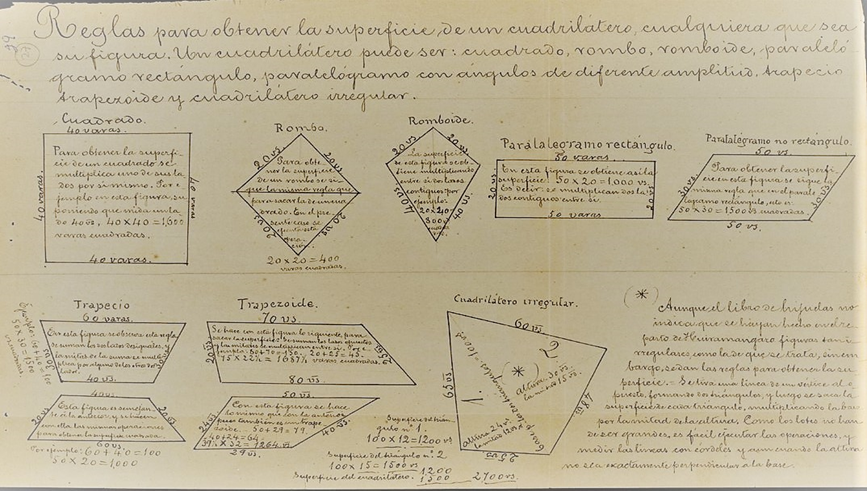 Reglas para obtener la superficie de un cuadrilátero, cualquiera que sea
su figura. Un cuadrilátero puede ser: cuadrado, rombo, romboide, paraleló
gramo rectángulo, paralelógramo con ángulos de diferente amplitud, trapecio
trapezoide y cuadrilátero irregular.
Cuadrado.
40 varas.
Para obtener la superfi-
cie de un cuadrado se
multiplica uno de sus la
dos por si mismo. Por e
jemplo en esta figura, su
poniendo que mida un la
do 40 vs, 40 x 40 = 1,600
varas cuadradas.
40 varas.
40 varas.
40 varas.
Rombo.
20 vs
20 vs
Para obte-
ner la superficie
de un rombo se si-
gue la misma regla que
para sacar la de un cua
drado. En el pre
20 vs
20 vs
20 x 20 = 400
varas cuadradas.
Romboide.
20 vs
20 vs
La superficie
de esta figura se ob-
tiene multiplicando
entre si dos lados
contiguos por
ejemplo:
20 x 40
800
40 vs
40 vs
Paralalegramo rectángulo.
50 varas.
En esta figura se obtiene asi la
superficie: 50 x 20 = 1000 vs
Es decir: se multiplican dos la
dos contiguos entre si.
20 vs
20 vs
50 varas
Paralalégramo no rectángulo.
50 vs.
Para obtener la superfi-
cie en esta figura se sigue la
misma regla que en el parale
logramo rectángulo, esto es:
50 x 30 = 1500 vs cuadradas.
30 vs
30 vs
50 vs.
Trapecio
60 varas.
En esta figura se observa esta regla
se suman los lados desiguales, y
la mitad de la suma se multi
plica por alguno de los otros dos
lados.
40 vs
40 vs
Esta figura es semejan-
te á la anterior, y se hacen
con ella las mismas operaciones
para obtener la superficie cuadrada.
20 vs
20 vs
60 vs.
Por ejemplo: 60 + 40 = 100
50 x 20 = 1000
Trapezoide.
70 vs
Se hace con esta figura lo siguiente, para
sacar la superficie: Se suman los lados opuestos
y las mitades se multiplican entre si. Por e
jemplo: 80 + 70 = 150. 20 + 25 = 45.
75 x 22½ = 1687½ varas cuadradas.
20 vs
25 vs
80 vs
50 vs.
Con esta figura se hace
lo mismo que con la anterior
pues tambien es un trape
zoide. 50 + 29 = 79.
40 + 24 = 64.
39½ x 32 = 1264 vs
24 vs
40 vs.
29 vs.
Superficie del trián-
gulo nº 1.
100 x 12 = 1200 vs
Superficie del triángulo nº 2
100 x 15 = 1500 vs
1200
1500
Superficie del cuadrilátero
2700 vs.
Cuadrilátero irregular.
60 vs
2
65 vs
1
48 vs
55 vs
altura 30 vs.
mitad 15 vs.
altura 24 vs
mitad 12 vs
(*)
Aunque el libro de hijuelas no
indica que se hayan hecho en el re
parto de figuras tan ir
regulares, como la de que se trata, sin em
bargo, se dan las reglas para obtener la su
perficie. Se tira una línea de un vértice al o
puesto, formando dos triángulos, y luego se saca la
superficie de cada triángulo, multiplicando la base
por la mitad de la altura. Como los lotes no han
de ser grandes, es fácil ejecutar las operaciones, y
medir las líneas con cordeles y aun cuando la altura
no sea exactamente perpendicular a la base.